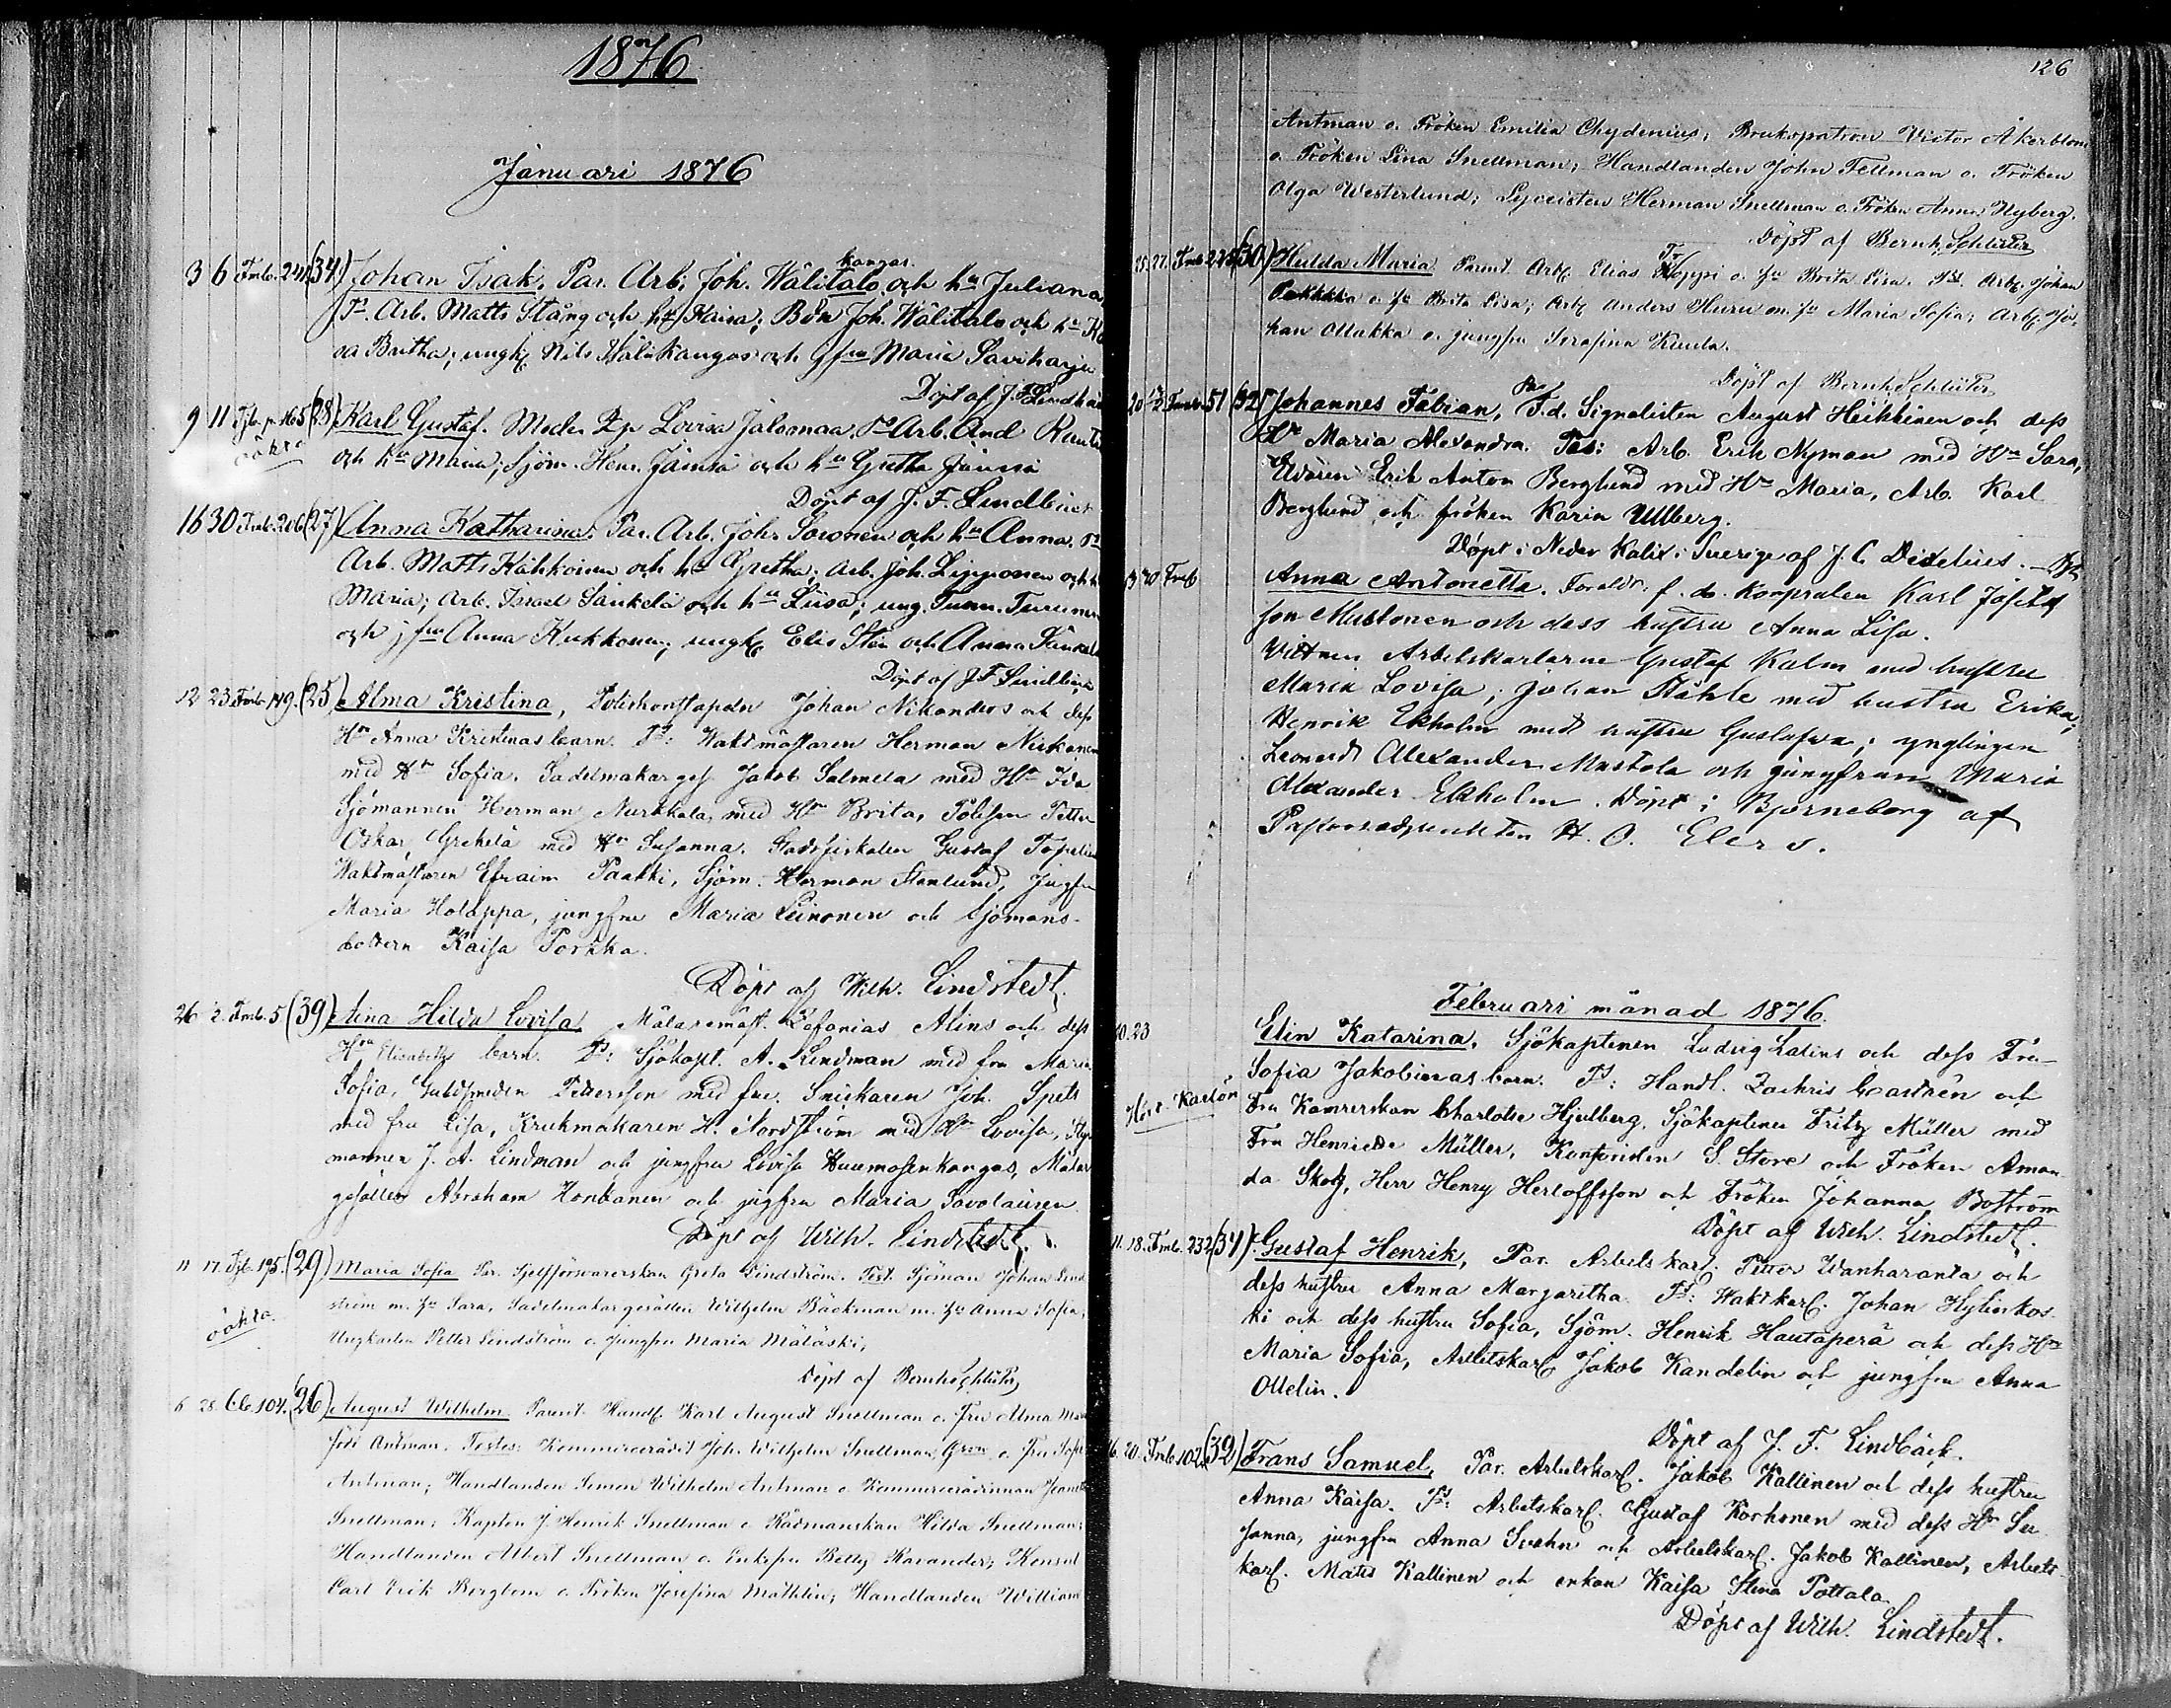 1876
Januari 1876
3 6 Tmb. 241 (34) Johan Isak. Par. Arb. Joh. Wälitalo kangas och hu Juliana
Ts. Arb. Matts Stång och hu Kaisa; Bdn Joh. Wälitalo och hu
sa Britha; ungk. Nils Wälikangas och jfru Maria Saviharju
Döpt af J. F. Lindbäck
9 11 Tjb. p. 165 (28) Karl Gustaf. Moder Pig. Lovisa Jalomaa. Ts Arb. And
oäkta
och hu Maria; Sjöm. Henr. Jämsä och hu Gretha Jämsä
Döpt af J. F. Lindbäck
16 30 Tmb. 206 (27) Anna Katharina. Par. Arb. Joh. Soronen och hu Anna. Ts
Arb. Matts Kähkönen och hu Gretha; Arb. Joh. Lipponen och h
Maria; Arb. Israel Sankelä och hu Liisa; ung.
och jfru Anna Kukkonen; ungk. Elis Sten och Anna
Döpt af J F Lindbäck
12 23 Tmb. 149. (25) Alma Kristina, Poliskonstapeln Johan Nikanders och dess
Hu Anna Kristinas barn. Ts: Waktmästaren Herman Niskanen
med Hu Sofia. Sadelmakar ges. Jakob Salmela med Hu Ida
Sjömannen Herman Nurkkala med Hu Brita, Polisen Petter
Oskar Grekelä med Hu Susanna. Stadsfiskalen Gustaf Topelius
Waktmästaren Efraim Paakki, Sjöm. Herman Stenlund, Jungfru
Maria Holappa, jungfru Maria Leinonen och Sjömans-
dottern Kaisa Porkka.
Döpt af Wilh. Lindstedt.
26 2. Tmb. 5 (39) Aina Hilda Lovisa Målaremäst. Zefanias Alins och dess
Hru Elisabeths barn. Ts: Sjökapt. A. Lindman med fru Maria
Sofia, Guldsmeden Pettersson med fru. Snickaren Joh. Spets
med fru Lisa, Krukmakaren H. Nordström med Hu Lovisa, Sty
mannen J. A. Lindman och jungfru Lovisa Huumosenkangas, Målar
gesällen Abraham Honkanen och jugfru Maria Savolainen
Döpt af Wilh. Lindstedt.
11 17. Tjb. 195. (29) Maria Sofia Par. Sjelfförsvarerskan Greta Lindström. Test. Sjöman Johan Lind
oäkta.
ström m. hu Sara, Sadelmakargesällen Wilhelm Bäckman m. hu Anna Sofia,
Ungkarlen Petter Lindström o. Jungfru Maria Mäläski,
Döpt af Bernh. Schlüter
6 28. Cb. 104. (26) August Wilhelm Parent. Handl. Karl August Snellman o. Fru Alma Maria
född Antman. Testes: Kommerserådet Joh. Wilhelm Snellman, Gson o. Fru Sofi
Antman; Handlanden Simon Wilhelm Antman o. Kommerserådinnan Jeanette
Snellman; Kapten J. Henrik Snellman o. Rådmanskan Hilda Snellman;
Handlanden Albert Snellman o. Enkefru Betty Ravander; Konsul
Carl Erik Bergbom o. Fröken Josefina Mathlin; Handlanden William
126
Antman o. Fröken Emilia Chydenius; Brukspatron Victor Åkerblom
o. Fröken Lina Snellman; Handlanden John Fellman o. Fröken
Olga Westerlund; Lyceisten Herman Snellman o. Fröken Anna Nyberg.
Döpt af Bernh. Schlüter
25. 27. Tmb 274 (30) Hulda Maria Parent. Arbk. Elias Toppi o. hu Brita Lisa. Tst. Arbk. Johan
o. hu Brita Lisa; Arbk Anders Huru m. hu Maria Sofia; Arbk. Jo-
han Makka o. jungfru Serafina Kuula.
Döpt af Bernh. Schlüter
51 (32) Johannes Fabian, Par. F.d. Signalisten August Heikkinen och dess
Hu Maria Alexandra. Tes: Arb. Erik Nyman med Hu Sara,
Erik Anton Berglund med Hu Maria, Arb. Karl
Berglund och fröken Karin Ullberg.
Döpt i Neder Kalix i Sverige af J. C. Dixelius.
30 Tmb
Anna Antonetta. Foraldr. f. ds. Korpralen Karl Josefs
son Mustonen och dess hustru Anna Lisa.
Vittnen Arbetskarlarne Gustaf Kalm med hustru
Maria Lovisa; Johan Ståhle med hustru Erika,
Henrik Ekholm med hustru Gustafva; ynglingen
Leonard Alexander Mustola och jungfrun Maria
Alexander Ekholm. Döpt i Björneborg af
Pastorsadjunkten H. O. Elers.
Februari månad 1876.
10. 23
Elin Katarina, Sjökaptenen Ludvig Latins och dess Fru
Sofia Jakobinas barn. Ts: Handl. Zachris Castrén och
Hör. t. Karlön
Fru Kamrerskan Charlotte Hjulberg, Sjökaptenen Fritz Müller med
Fru Henriette Müller, Kontoristen S. Store och Fröken Aman
da Skog, Herr Henry Herloffsson och Fröken Johanna Boström
Döpt af Wilh. Lindstedt.
11. 18. Tmb. 232 (34) Gustaf Henrik, Par. Arbetskarl. Petter Wanharanta och
dess hustru Anna Margaretha. Ts: Waktkarl. Johan Hylinkos
ki och dess hustru Sofia, Sjöm. Henrik Hautaperä och dess Hu
Maria Sofia, Arbetskarl Jakob Kandelin och jungfru Anna
Ollelin.
Döpt af J. F. Lindbäck.
16. 20. Tmb 102. (32) Frans Samuel, Par. Arbetskarl. Jakob Kallinen och dess hustru
Anna Kaisa. Ts: Arbetskarl. Gustaf Korhonen med dess Hu Su
sanna, jungfru Anna Svahn och Arbetskarl. Jakob Kallinen, Arbets
karl. Mats Kallinen och enkan Kaisa Stina Pottala.
Döpt af Wilh. Lindstedt.